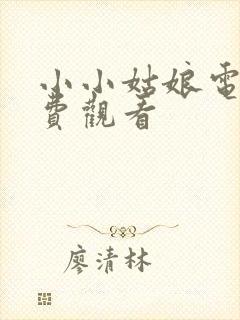 小小姑娘電
費觀看
廖清林